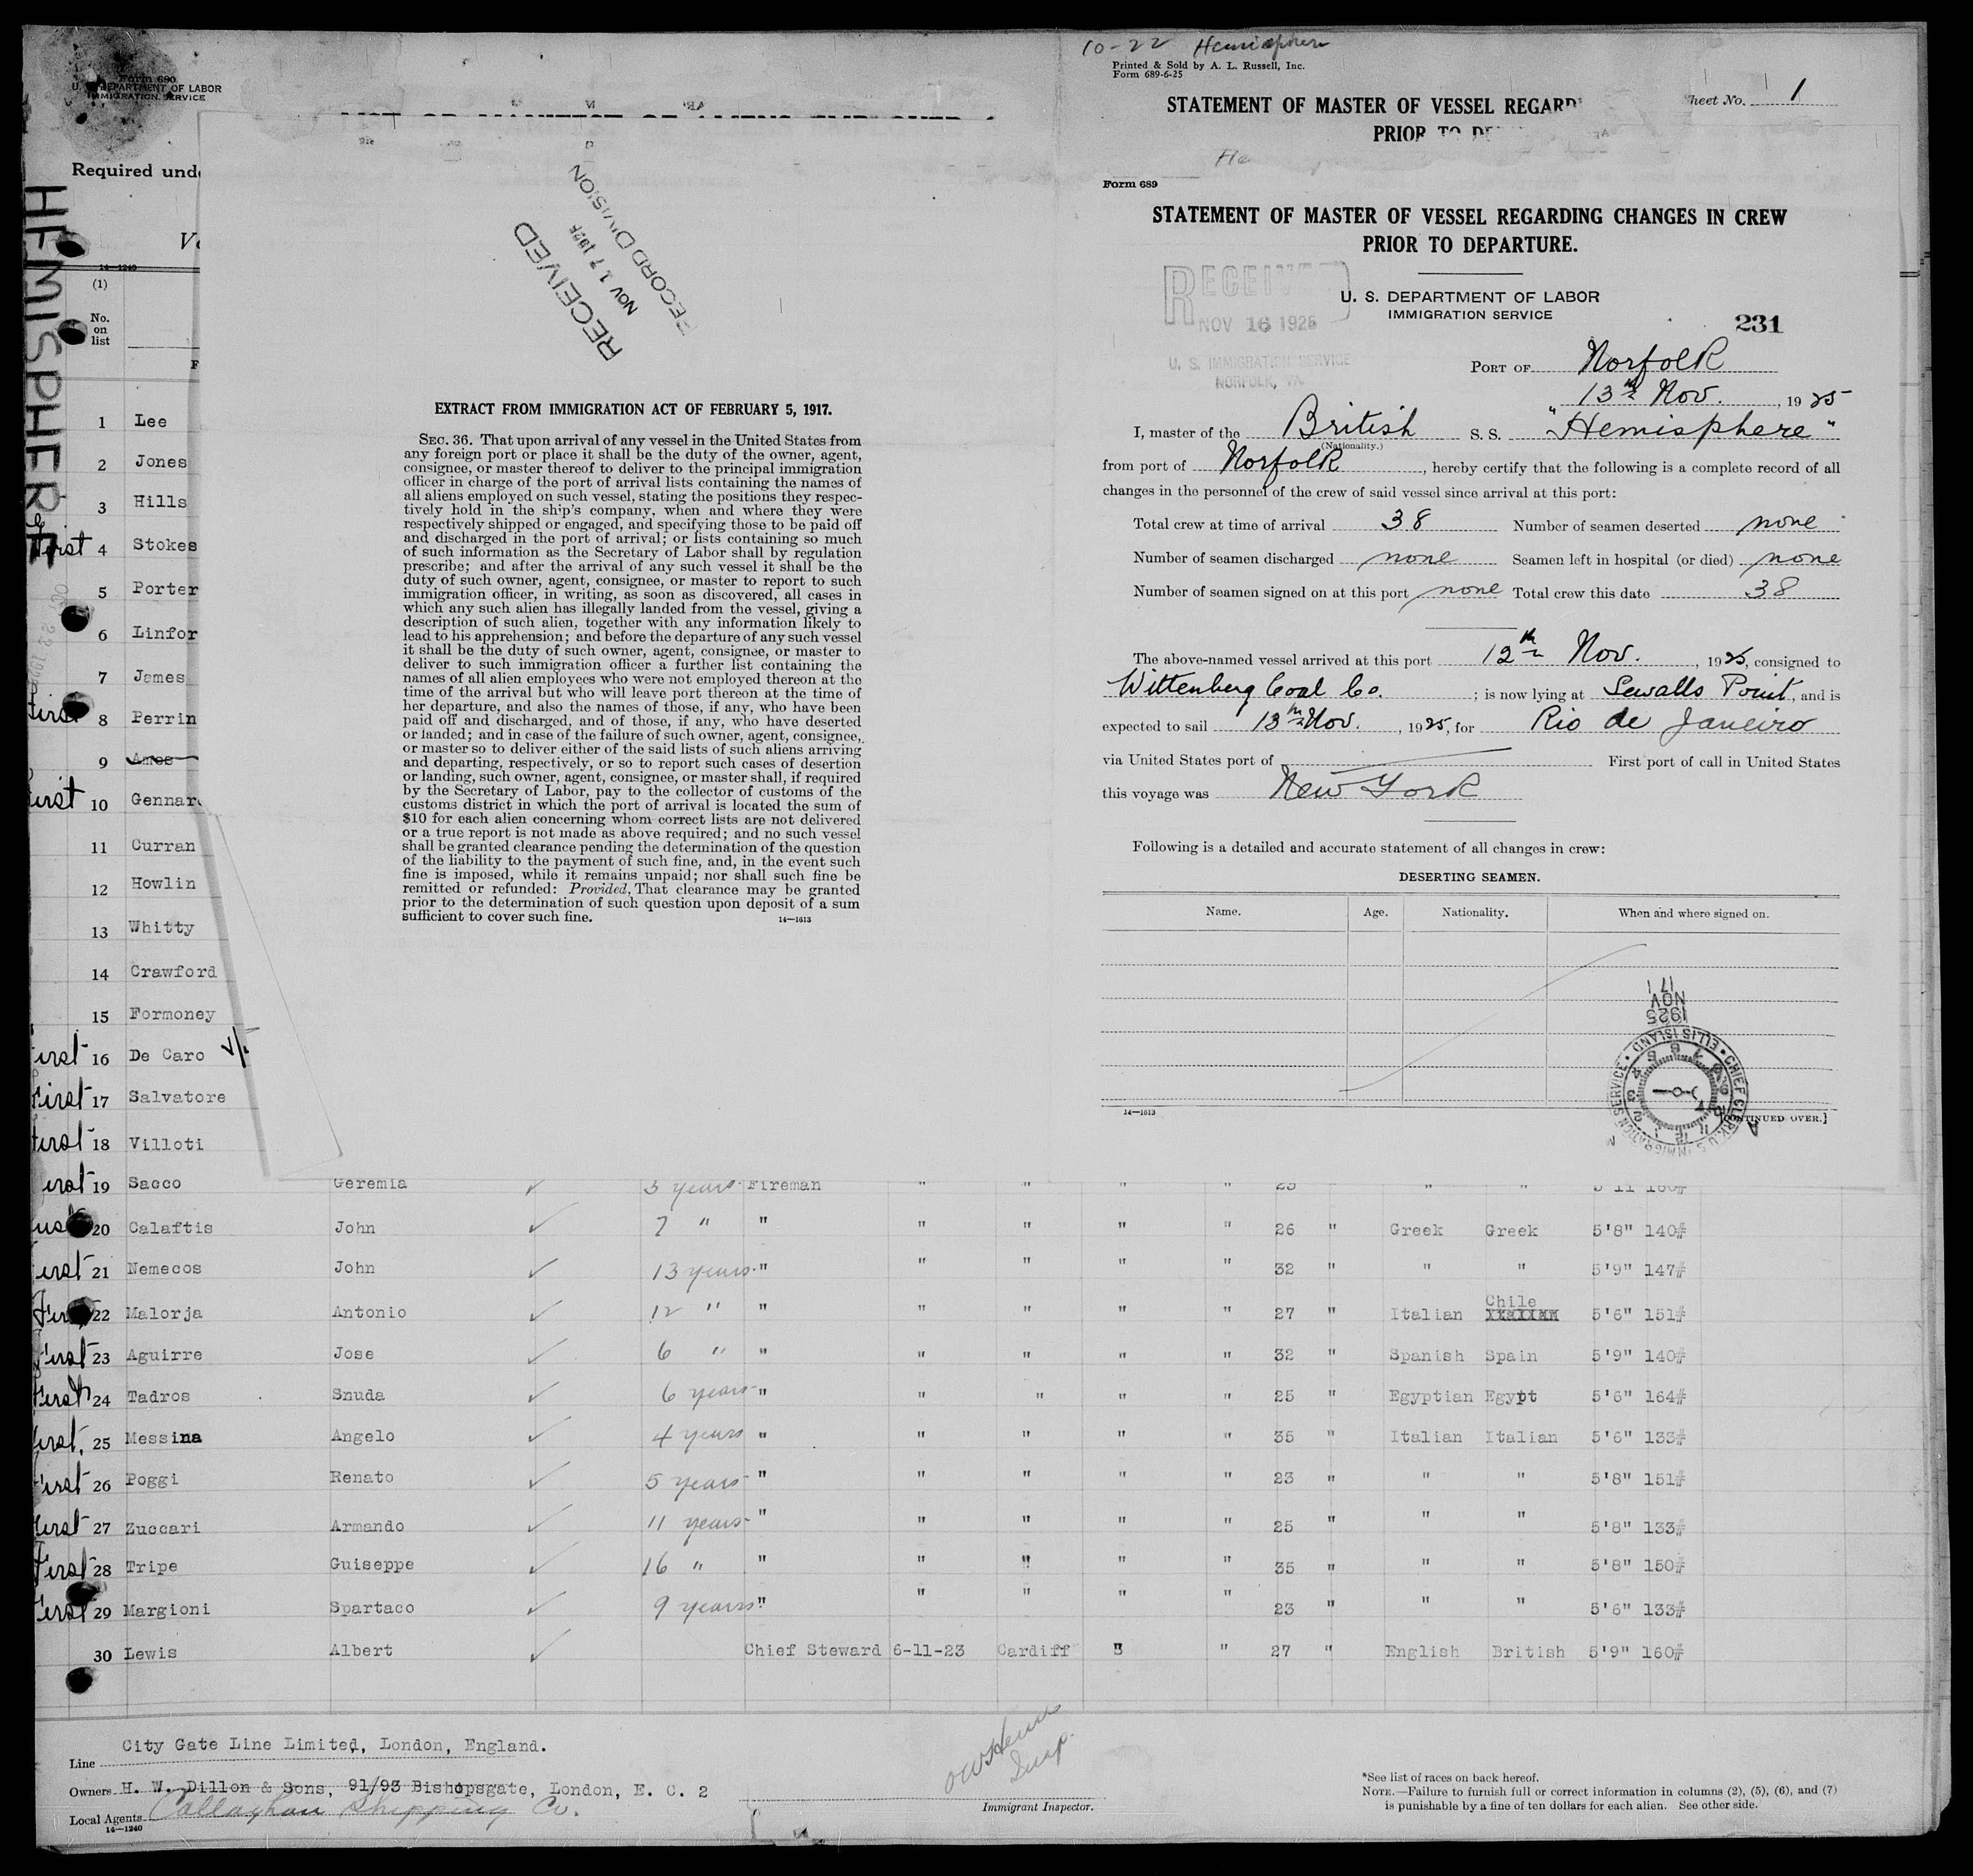 Form 680
U. S. DEPARTMENT OF LABOR
IMMIGRATION SERVICE
Required unde
HEMISPHERE
14—1240
(1)
No.
on
list
1 Lee
2 Jones
3 Hills
First 4 Stokes
5 Porter
6 Linfor
7 James
First 8 Perrin
9 Ames
First 10 Gennar
11 Curran
12 Howlin
13 Whitty
14 Crawford
15 Formoney
First 16 De Caro
First 17 Salvatore
First 18 Villoti
RECEIVED
NOV 17 1925
RECORD DIVISION
EXTRACT FROM IMMIGRATION ACT OF FEBRUARY 5, 1917.
SEC. 36. That upon arrival of any vessel in the United States from
any foreign port or place it shall be the duty of the owner, agent,
consignee, or master thereof to deliver to the principal immigration
officer in charge of the port of arrival lists containing the names of
all aliens employed on such vessel, stating the positions they respec-
tively hold in the ship's company, when and where they were
respectively shipped or engaged, and specifying those to be paid off
and discharged in the port of arrival; or lists containing so much
of such information as the Secretary of Labor shall by regulation
prescribe; and after the arrival of any such vessel it shall be the
duty of such owner, agent, consignee, or master to report to such
immigration officer, in writing, as soon as discovered, all cases in
which any such alien has illegally landed from the vessel, giving a
description of such alien, together with any information likely to
lead to his apprehension; and before the departure of any such vessel
it shall be the duty of such owner, agent, consignee, or master to
deliver to such immigration officer a further list containing the
names of all alien employees who were not employed thereon at the
time of the arrival but who will leave port thereon at the time of
her departure, and also the names of those, if any, who have been
paid off and discharged, and of those, if any, who have deserted
or landed; and in case of the failure of such owner, agent, consignee,
or master so to deliver either of the said lists of such aliens arriving
and departing, respectively, or so to report such cases of desertion
or landing, such owner, agent, consignee, or master shall, if required
by the Secretary of Labor, pay to the collector of customs of the
customs district in which the port of arrival is located the sum of
$10 for each alien concerning whom correct lists are not delivered
or a true report is not made as above required; and no such vessel
shall be granted clearance pending the determination of the question
of the liability to the payment of such fine, and, in the event such
fine is imposed, while it remains unpaid; nor shall such fine be
remitted or refunded: Provided, That clearance may be granted
prior to the determination of such question upon deposit of a sum
sufficient to cover such fine. 14—1613
10-22 Hemisphere
Printed & Sold by A. L. Russell, Inc.
Form 689-6-25
STATEMENT OF MASTER OF VESSEL REGARD
PRIOR TO DE
heet No. 1
He
Form 689
STATEMENT OF MASTER OF VESSEL REGARDING CHANGES IN CREW
PRIOR TO DEPARTURE.
U. S. DEPARTMENT OF LABOR
IMMIGRATION SERVICE
RECEIVED
NOV 16 1925
U. S. IMMIGRATION SERVICE
NORFOLK, VA.
231
PORT OF Norfolk
13th Nov. , 1925
I, master of the British S. S. "Hemisphere"
(Nationality.)
from port of Norfolk , hereby certify that the following is a complete record of all
changes in the personnel of the crew of said vessel since arrival at this port:
Total crew at time of arrival 38 Number of seamen deserted none
Number of seamen discharged none Seamen left in hospital (or died) none
Number of seamen signed on at this port none Total crew this date 38
The above-named vessel arrived at this port 12th Nov. , 1925, consigned to
Wittenberg Coal Co. ; is now lying at Sewalls Point, and is
expected to sail 13th Nov. , 1925, for Rio de Janeiro
via United States port of First port of call in United States
this voyage was New York
Following is a detailed and accurate statement of all changes in crew:
DESERTING SEAMEN.
Name. Age. Nationality. When and where signed on.
1925
NOV
17
CHIEF CLERK U. S. IMMIGRATION SERVICE • ELLIS ISLAND •
14—1613
[CONTINUED OVER.]
First 19 Sacco Geremia 3 years Fireman " " " " 25 " " 5'11 160#
First 20 Calaftis John 7 " " " " " " 26 " Greek Greek 5'8" 140#
First 21 Nemecos John 13 years " " " " " 32 " " " 5'9" 147#
First 22 Malorja Antonio 12 " " " " " " 27 " Italian Chile 5'6" 151#
First 23 Aguirre Jose 6 " " " " " " 32 " Spanish Spain 5'9" 140#
First 24 Tadros Snuda 6 years " " " " " 25 " Egyptian Egypt 5'6" 164#
First 25 Messina Angelo 4 years " " " " " 35 " Italian Italian 5'6" 133#
First 26 Poggi Renato 5 years " " " " " 23 " " " 5'8" 151#
First 27 Zuccari Armando 11 years " " " " " 25 " " " 5'8" 133#
First 28 Tripe Guiseppe 16 " " " " " " 35 " " " 5'8" 150#
First 29 Margioni Spartaco 9 years " " " " " 23 " " " 5'6" 133#
30 Lewis Albert Chief Steward 6-11-23 Cardiff " " 27 " English British 5'9" 160#
Line City Gate Line Limited, London, England.
Owners H. W. Dillon & Sons, 91/93 Bishopsgate, London, E. C. 2
Local Agents Callaghan Shipping Co.
14—1240
Insp.
Immigrant Inspector.
*See list of races on back hereof.
NOTE.—Failure to furnish full or correct information in columns (2), (5), (6), and (7)
is punishable by a fine of ten dollars for each alien. See other side.